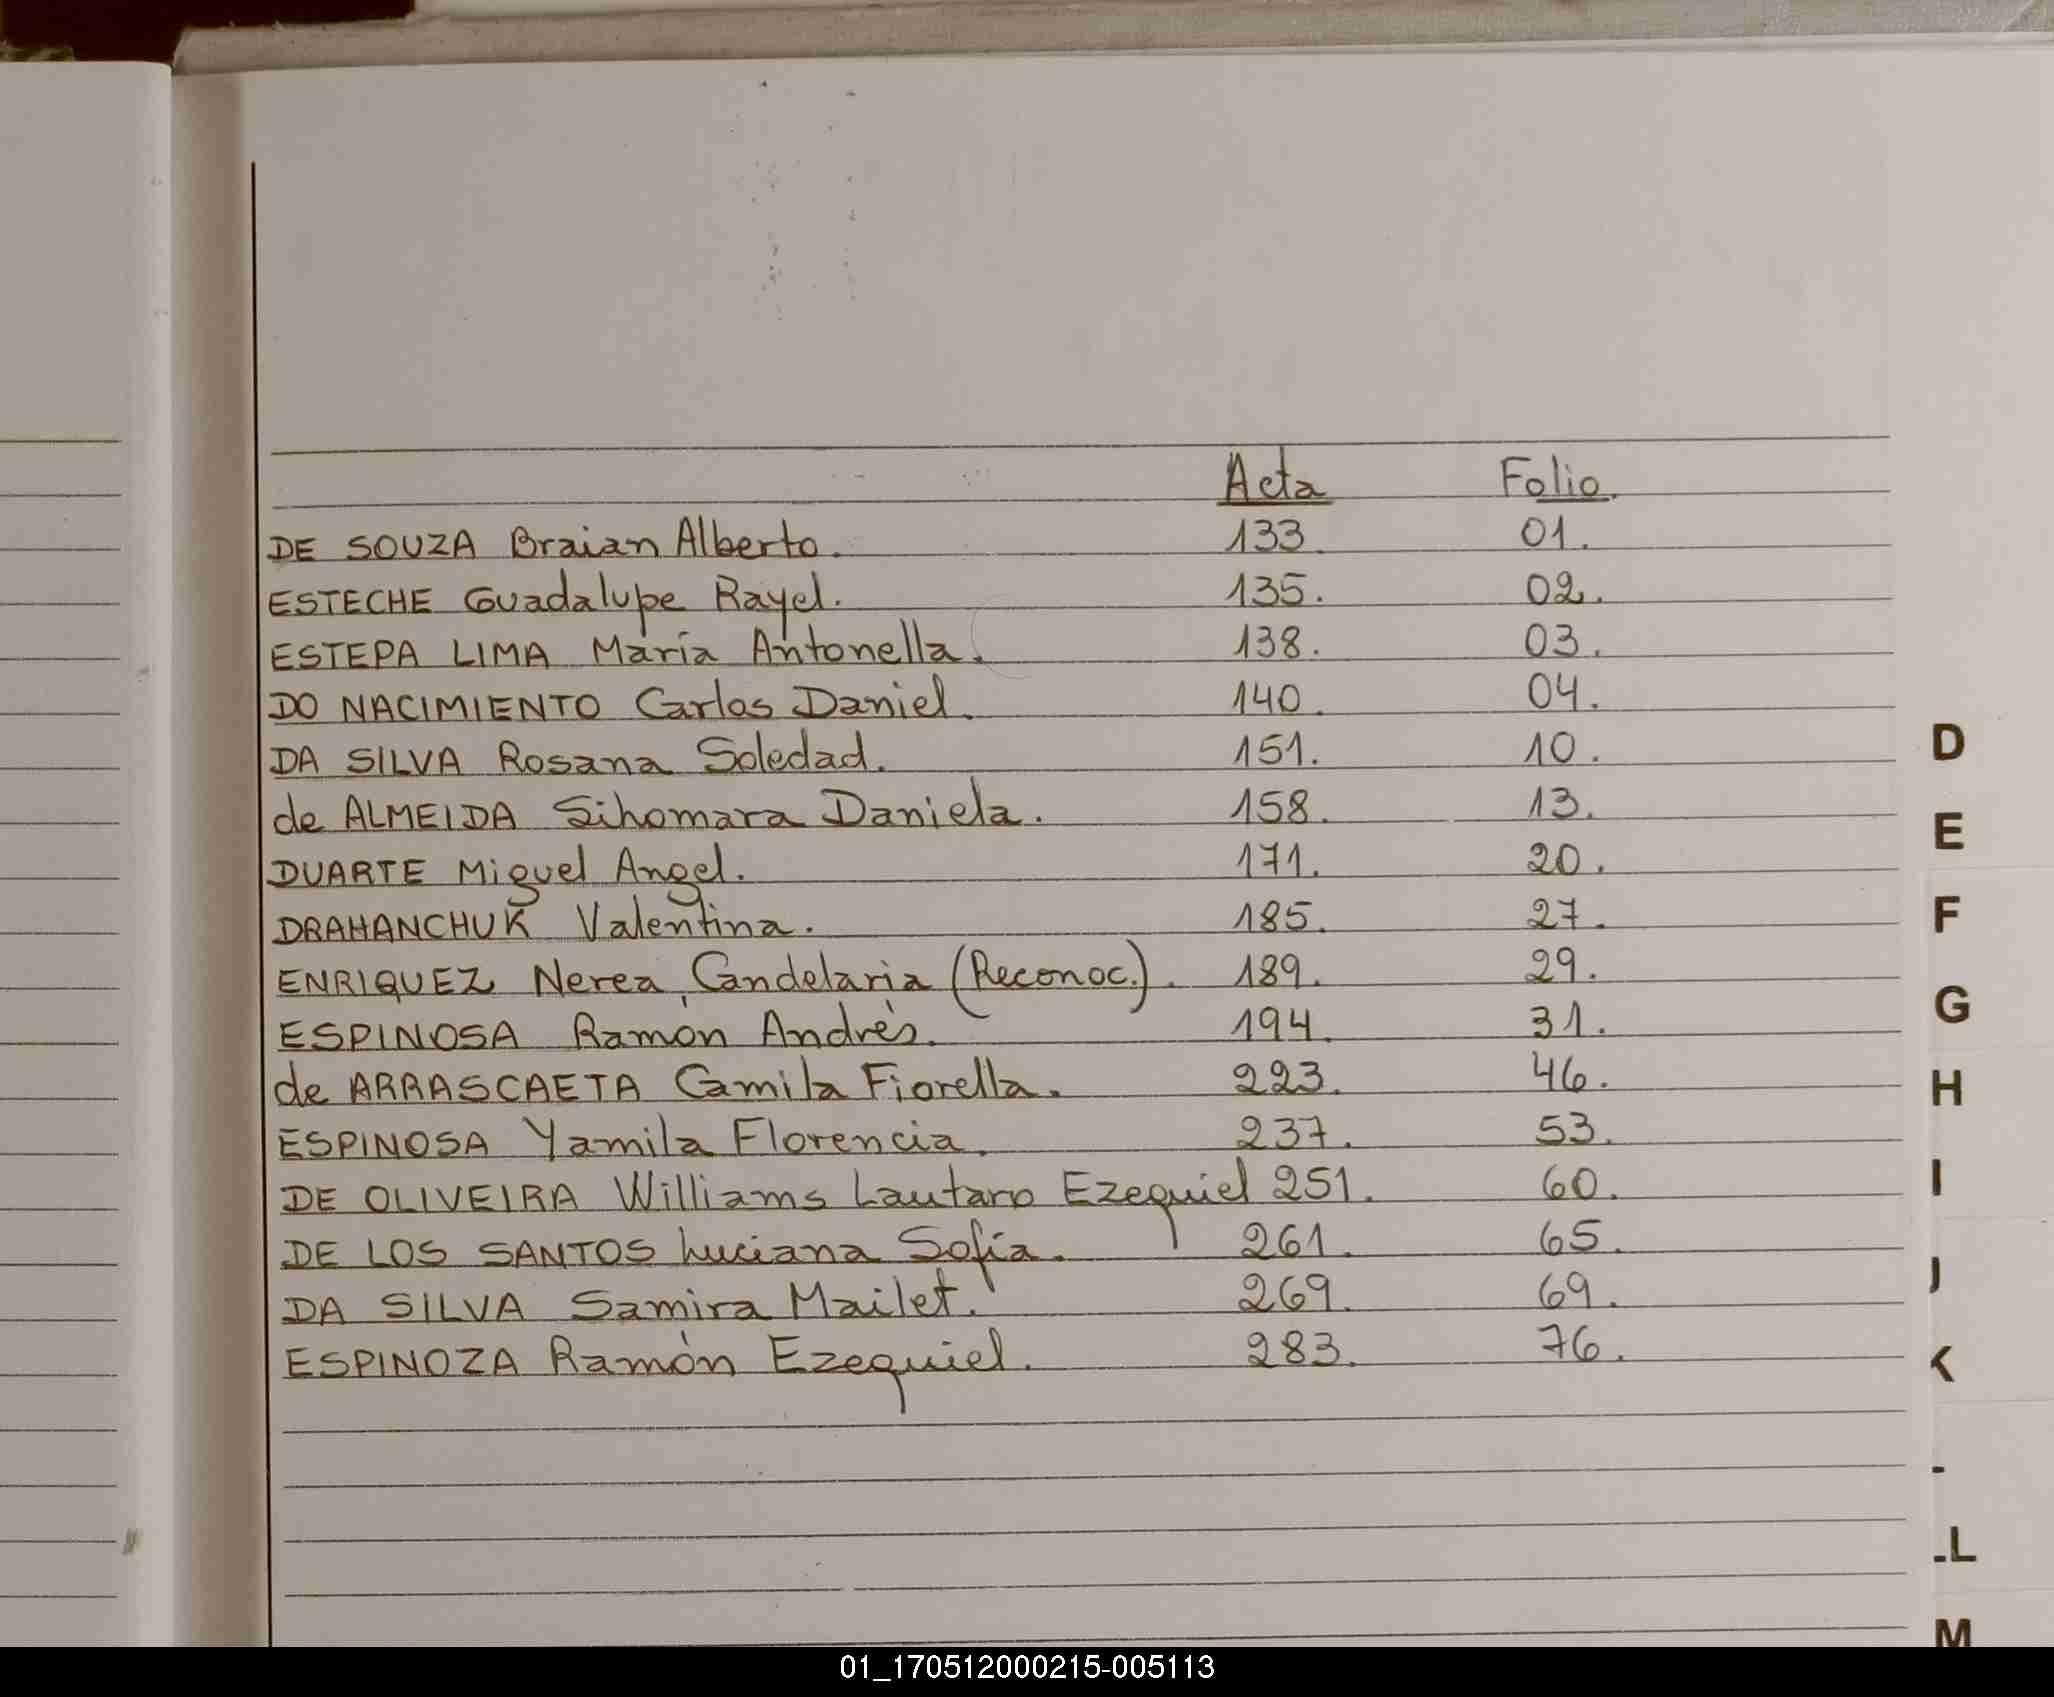 Acta Folio.
DE SOUZA Braian Alberto. 133. 01.
ESTECHE Guadalupe Rayel. 135. 02.
ESTEPA LIMA María Antonella. 138. 03.
DO NACIMIENTO Carlos Daniel. 140. 04.
DA SILVA Rosana Soledad. 151. 10.
de ALMEIDA Sihomara Daniela. 158. 13.
DUARTE Miguel Angel. 171. 20.
DRAHANCHUK Valentina. 185. 27.
ENRIQUEZ Nerea Candelaria (Reconoc.). 189. 29.
ESPINOSA Ramón Andrés. 194. 31.
de ARRASCAETA Camila Fiorella. 223. 46.
ESPINOSA Yamila Florencia. 237. 53.
DE OLIVEIRA Williams Lautaro Ezequiel 251. 60.
DE LOS SANTOS Luciana Sofía. 261. 65.
DA SILVA Samira Mailet. 269. 69.
ESPINOZA Ramón Ezequiel. 283. 76.
D
E
F
G
H
I
J
K
L
M
01_170512000215-005113